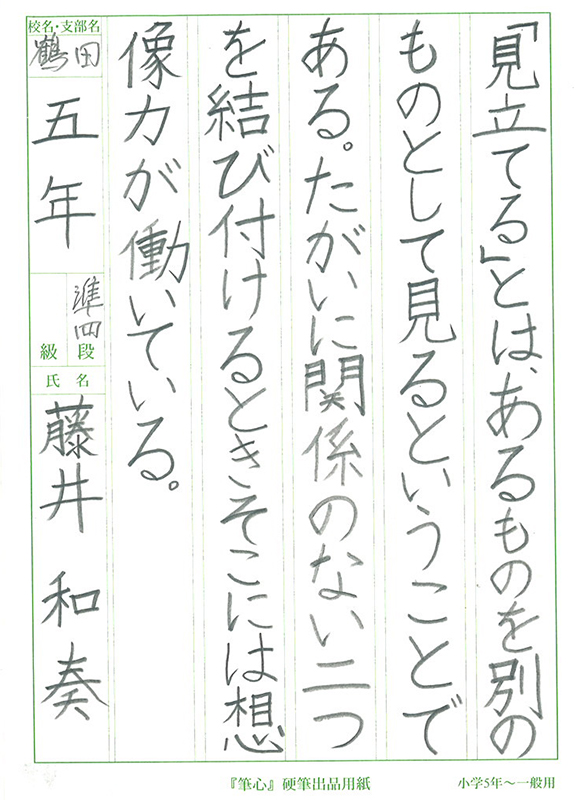 「見立てる」とは、あるものを別の
ものとして見るということで
ある。たがいに関係のない二つ
を結び付けるときそこには想
像力が働いている。
校名・支部名
鶴田
五年
準四
級 段
氏 名
藤井 和奏
『筆心』硬筆出品用紙
小学5年〜一般用